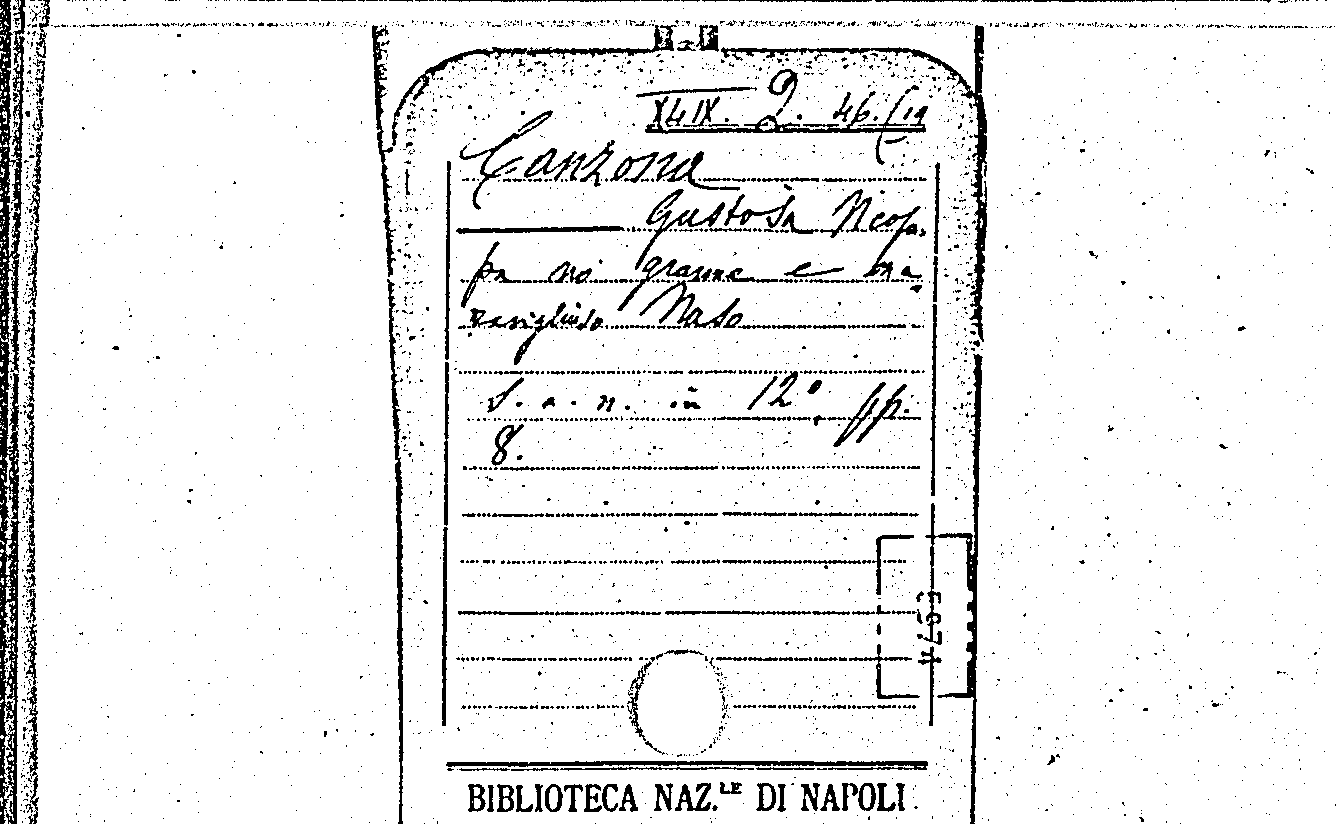 2. 46.(19
Canzona
Gustosa Ncop.
pa no granne e ma,
raviglioso Naso
S. a. n. in 12°, pp.
8.
BIBLIOTECA NAZ.LE DI NAPOLI